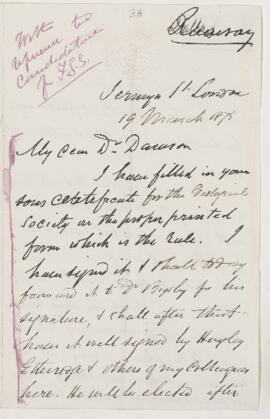 3A
Ramsay
With
reference to
candidature
for F.G.S.
Jermyn St London
19 March 1875
My dear Dr Dawson
I have filled in your
sons certificate for the Geological
Society on the proper printed
form which is the rule. I
have signed it & shall today
forward it to Dr Bigsby for his
signature, & shall after that
have it well signed by Huxley
Etheridge & others of my Colleagues
here. He will be elected after